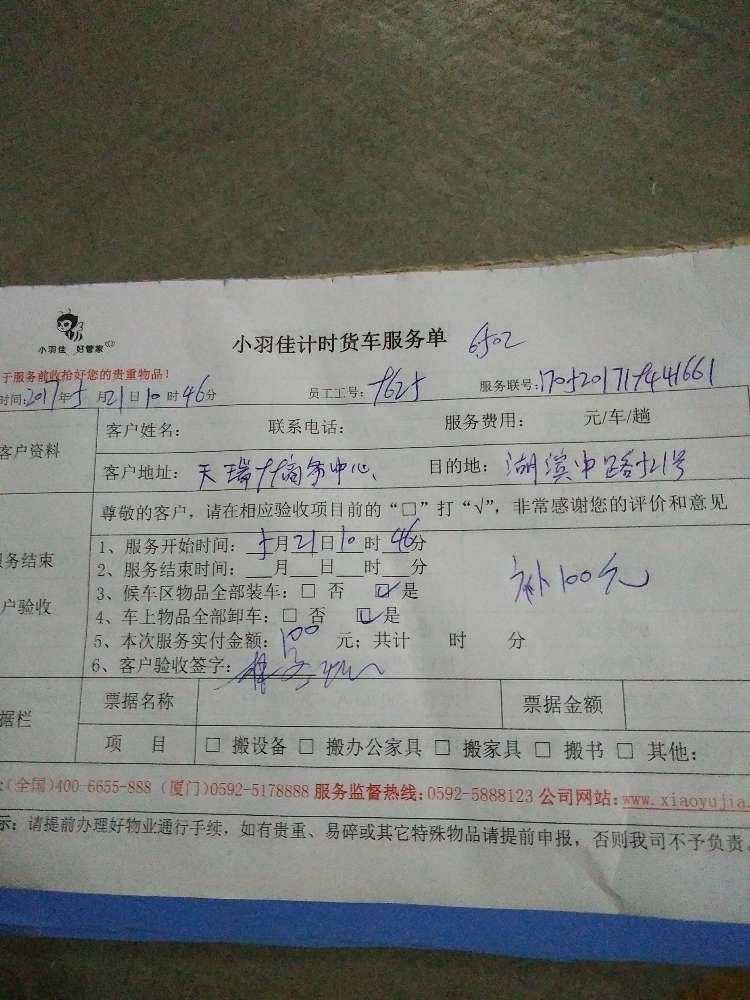 小羽佳 好管家
小羽佳计时货车服务单 6502
于服务前收拾好您的贵重物品!
时间:2017年5月21日10时46分 员工工号: 服务联号:
客户资料
客户姓名: 联系电话: 服务费用: 元/车/趟
客户地址: 天瑞 商务中心 目的地: 湖滨中路 21号
尊敬的客户，请在相应验收项目前的“□”打“√”，非常感谢您的评价和意见
务结束
户验收
1、服务开始时间: 5月21日10时46分
2、服务结束时间: 月 日 时 分
3、候车区物品全部装车: □ 否 ☑是
4、车上物品全部卸车: □ 否 ☑是
5、本次服务实付金额: 100 元; 共计 时 分
补100元
6、客户验收签字:
据栏
票据名称 票据金额
项 目 □ 搬设备 □ 搬办公家具 □ 搬家具 □ 搬书 □ 其他:
:(全国)400-6655-888 (厦门)0592-5178888 服务监督热线:0592-5888123 公司网站:www.xiaoyujia.
示: 请提前办理好物业通行手续，如有贵重、易碎或其它特殊物品请提前申报，否则我司不予负责。